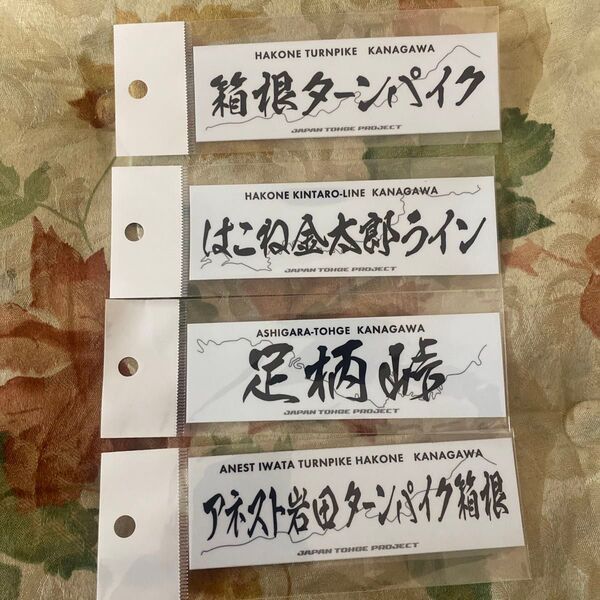 HAKONE TURNPIKE KANAGAWA
箱根ターンパイク
JAPAN TOHGE PROJECT
HAKONE KINTARO-LINE KANAGAWA
はこね金太郎ライン
JAPAN TOHGE PROJECT
ASHIGARA-TOHGE KANAGAWA
足柄峠
JAPAN TOHGE PROJECT
ANEST IWATA TURNPIKE HAKONE KANAGAWA
アネスト岩田ターンパイク箱根
JAPAN TOHGE PROJECT